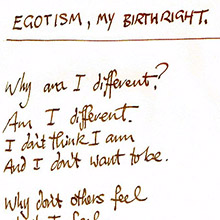 EGOTISM, MY BIRTHRIGHT.
Why am I different?
Am I different.
I don't think I am
And I don't want to be.
Why don't others feel